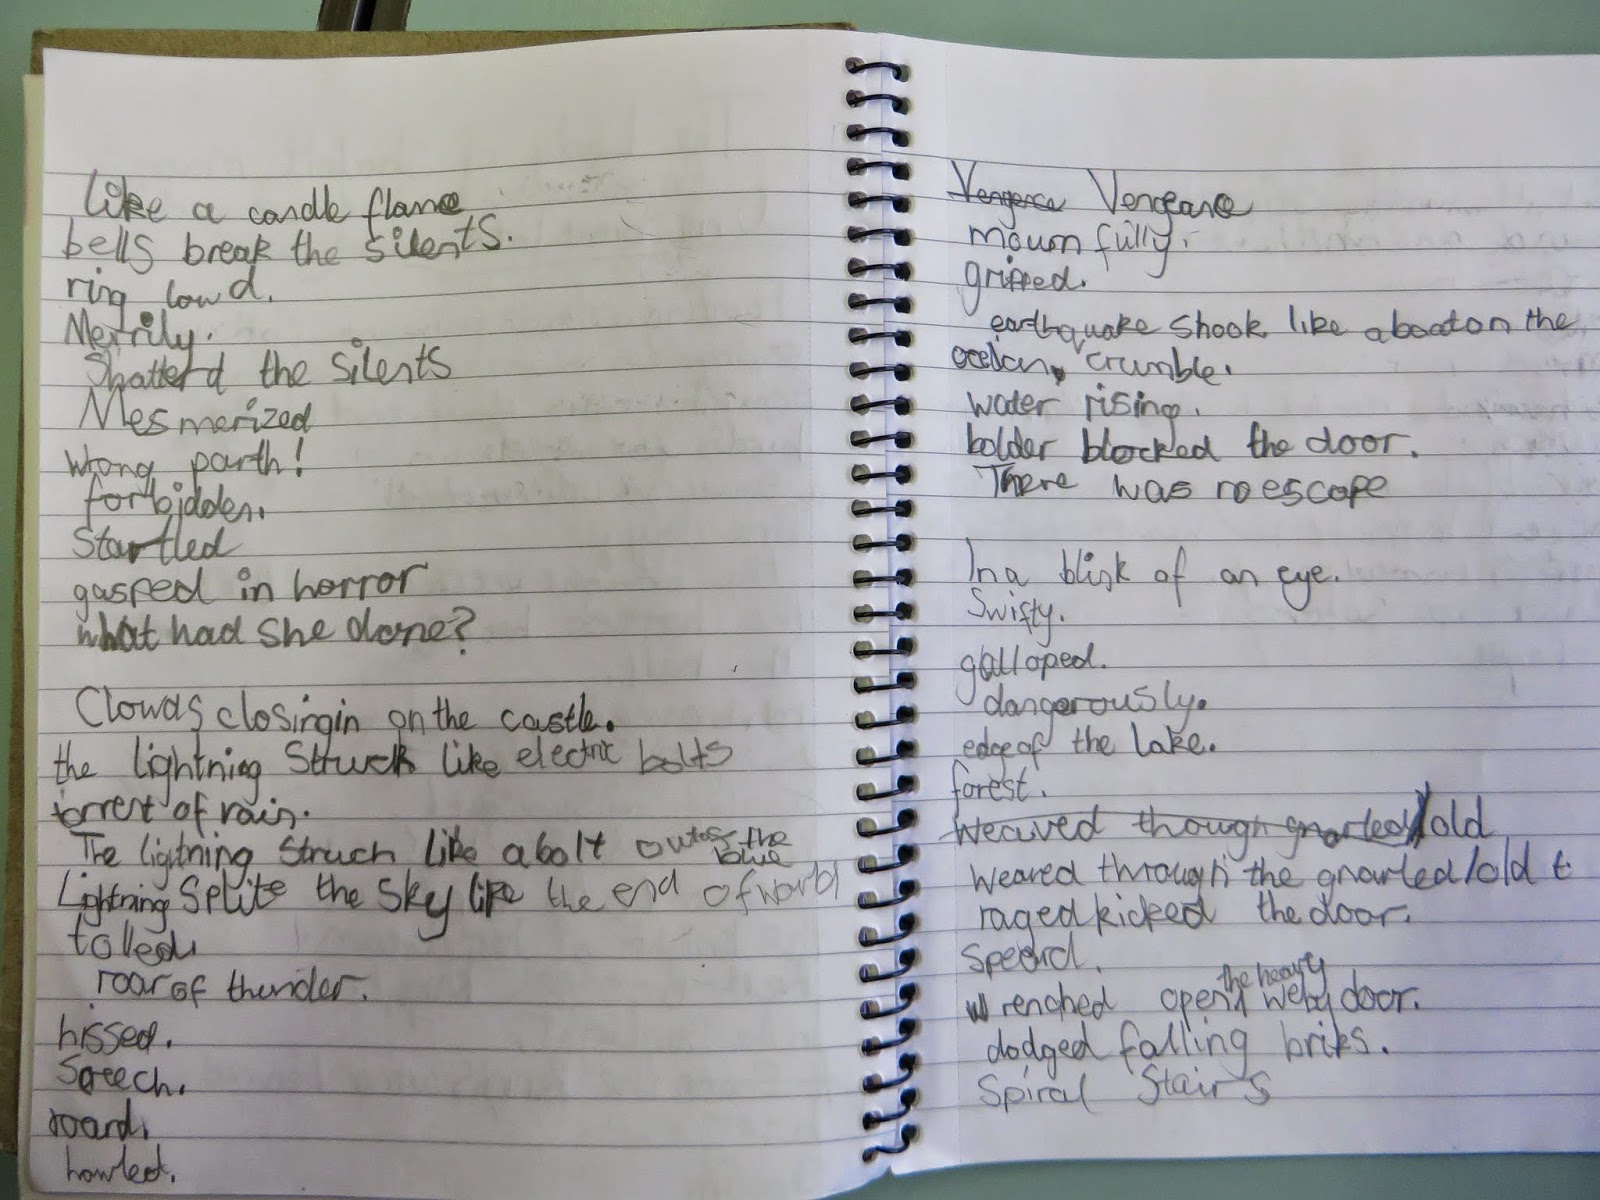 Like a candle flame
bells break the silents.
ring lowd.
Merrily.
Shatterd the silents
Mesmerized
wrong parth!
forbidden.
Startled
gasped in horror
what had she done?
Clowds closingin on the castle.
the lightning Struck like electric bolts
torrent of rain.
The lightning struck like a bolt outof the blue
Lightning Splite the sky like the end of world
tolled.
roar of thunder.
hissed.
Screech.
roard.
howled.
Vengence Vengeance
mournfully.
gripped.
earthquake shook like a boat on the
ocean, crumble.
water rising.
bolder blocked the door.
There was no escape
In a blink of an eye.
Swifty.
galloped.
dangerously.
edge of the lake.
forest.
Weaved though gnarled/old
Weaved through the gnarled/old t
raged kicked the door.
Speard.
wrenched open the heavy door.
dodged falling briks.
Spiral Stairs